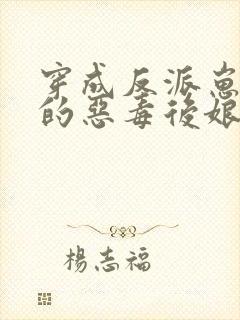 穿成反派崽
的惡毒後娘
楊志福